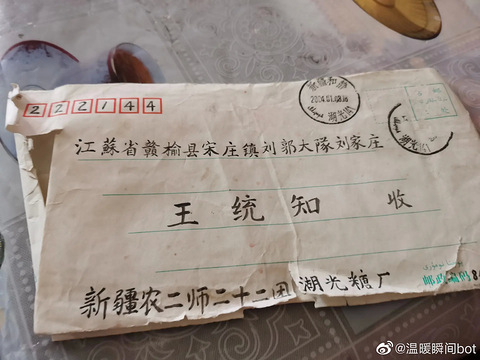 222144
江蘇省贛榆县宋庄镇刘郭大隊刘家庄
王统知 收
新疆农二师二十二团湖光糖厂
邮政编码 8
@温暖瞬间bot